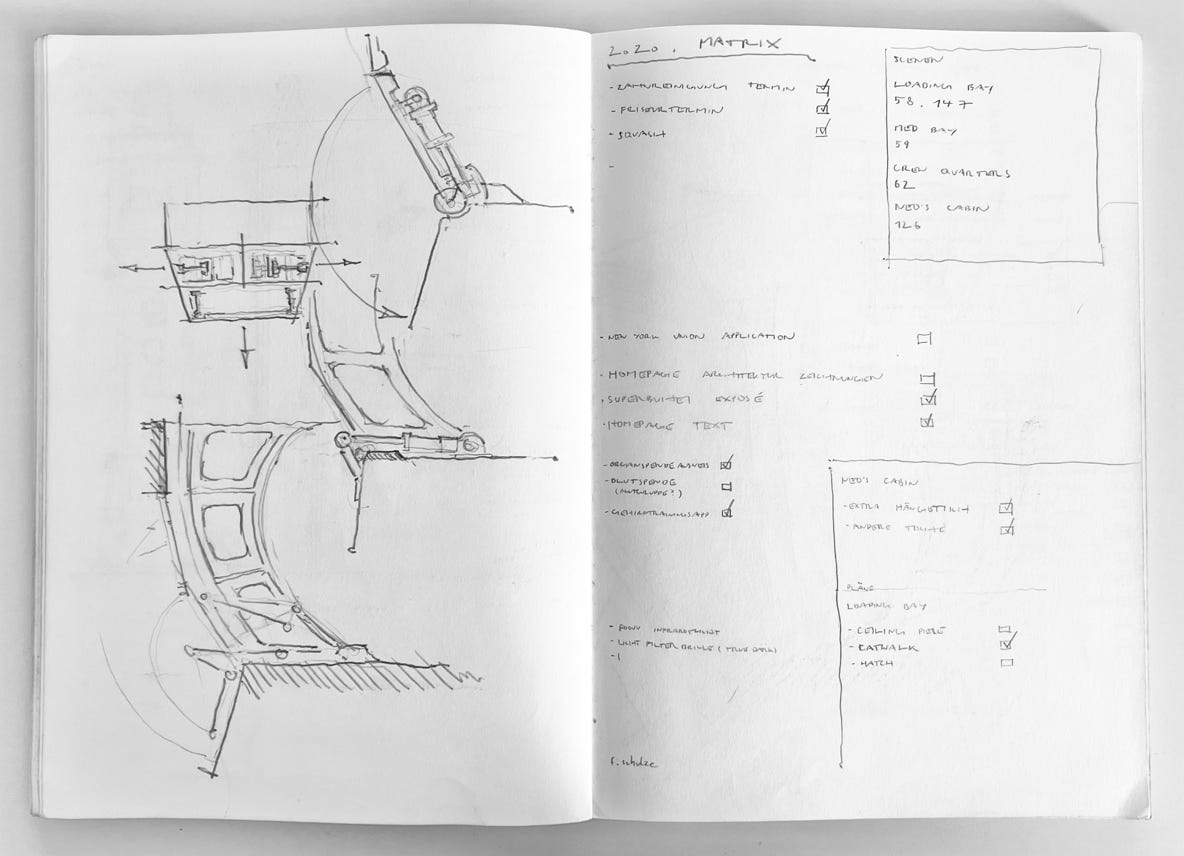 2020. MATRIX
- ZAHNREINIGUNG TERMIN
- FRISEURTERMIN
- SQUASH
-
SCENEN
LOADING BAY
58. 147
MED BAY
59
CREW QUARTERS
62
NEO'S CABIN
126
- NEW YORK UNION APPLICATION
- HOMEPAGE ARCHITEKTUR ZEICHNUNGEN
- SUPERBUFFET EXPOSÉ
- HOMEPAGE TEXT
- ORGANSPENDEAUSWEIS
- BLUTSPENDE
(BLUTGRUPPE?)
- GEHIRNTRAININGSAPP
NEO'S CABIN
- EXTRA HÄNGETISCH
- ANDERE TISCHE
PLÄNE
LOADING BAY
- CEILING PIECE
- CATWALK
- HATCH
- INFRAROTLICHT
- LICHT FILTER BRILLE (TRUE DARK)
f. schulze